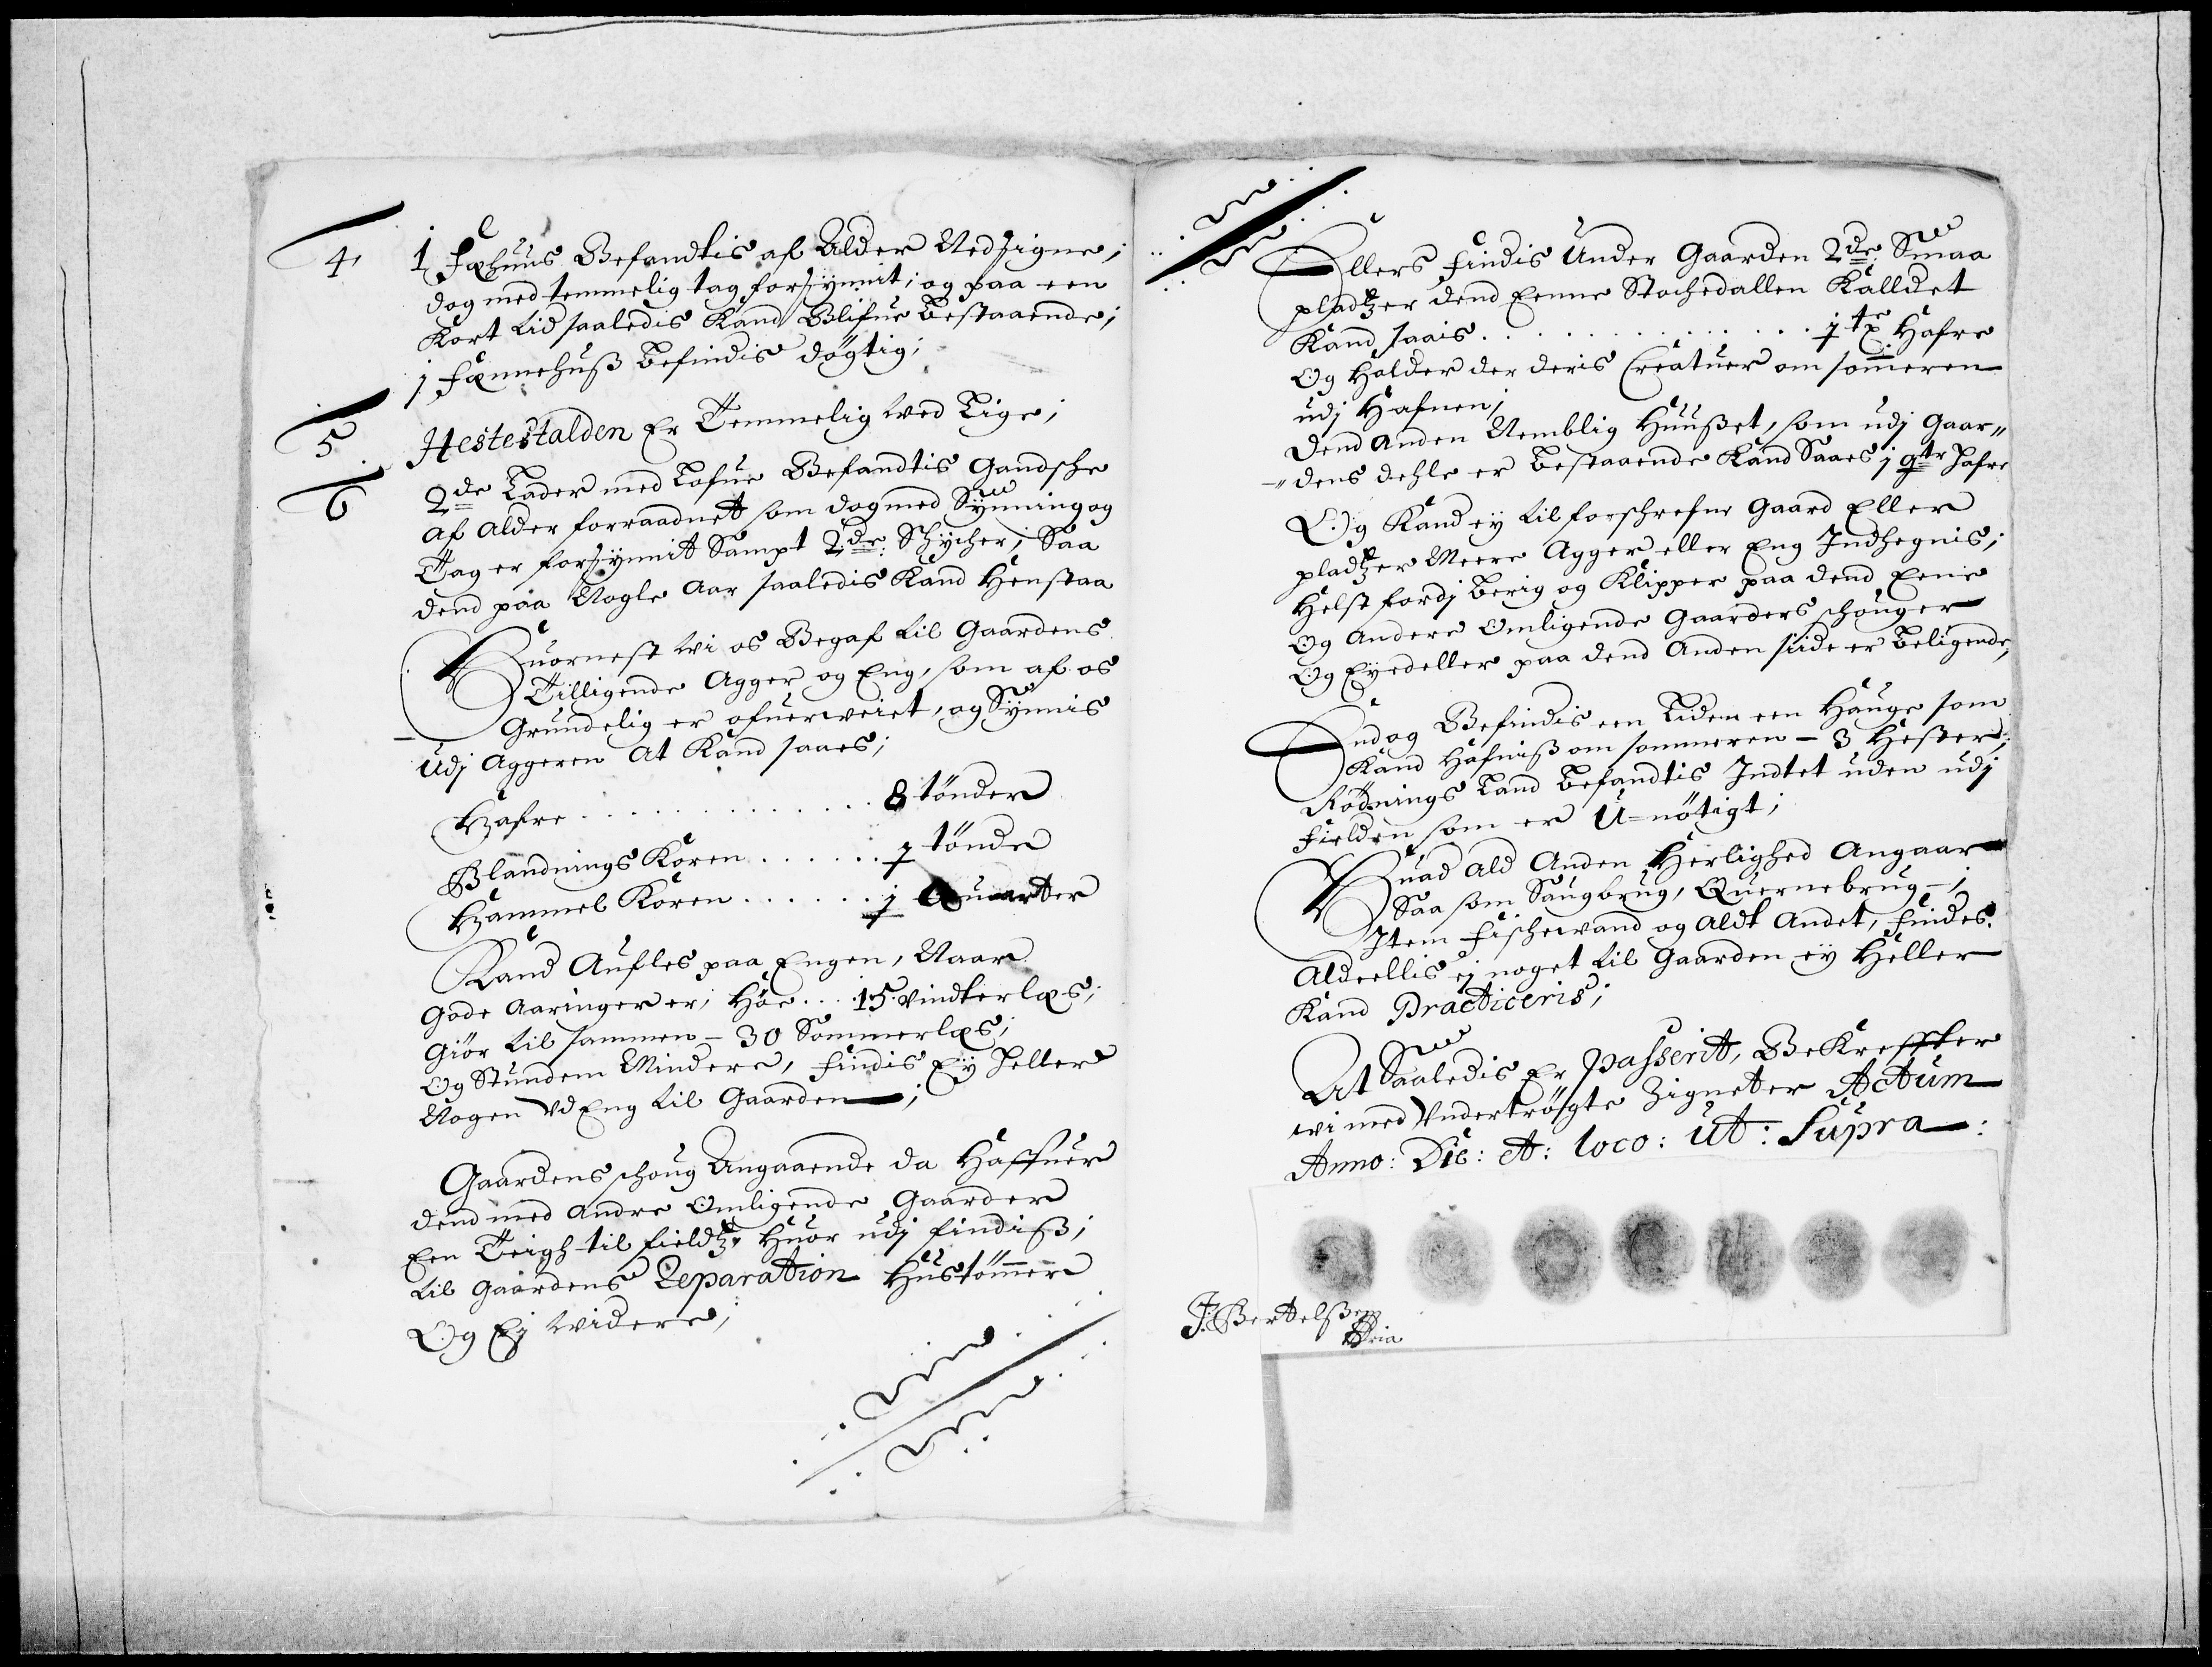 4.
1 Fæhuus Befandtis af Alder Nedsigne;
dog med temmelig tag forsÿnnit; og paa een
Kort tid saaledis Kand Blifue Bestaaende;
1 Fønnehuß Befindis døgtig;
5
Hestestalden Er Temmelig Ved Lige;
6
2de Lader med Lofue Befandtis Gandsche
af Alder forraadnet som dog med Sÿnning og
Tag er forsÿnnit Sampt 2de Schÿcher; Saa
dend paa Nogle Aar saaledis Kand Henstaa
Huornest Wi os Begaf til Gaardens
Tilligende Agger og Eng, som af os
Grundelig er ofuerweiet, og Sÿnnis
Udj Aggeren At Kand saaes;
Hafre . . . . . . . . . . . . . 8 tønder
Blandnings Koren . . . . . . . 1 tønde
Hammel Koren . . . . . . . 1 Quarter
Kand Aufles paa Engen, Naar
Gode Aaringer er, Høe . . . 15 Vindterlæs;
Giør til sammen – 30 Sommerlæs;
Og Stundem Mindere, findis Eÿ heller
Nogen Vd Eng til Gaarden;
Gaardens schoug Angaaende da Haffuer
dend med Andre Omligende Gaarder
Een Teigh til fieldtz, Huor udj findiß;
til Gaardens Reparation Hustømmer
Og Ej Widere;
Ellers findis Under Gaarden 2de Smaa
pladtzer dend Eenne Stochedallen Kalldet
Kand saais . . . . . . . . . . . . . . . . 1 tr Hafre
Og Holder der deris Creatuer om sommeren
udj Hafnen;
Dend Anden Nemblig Huußet, som udj Gaar„
„dens dehle er Bestaaende Kand Saaes 1 qtr Hafre
Og Kand eÿ til forschrefne Gaard Eller
pladtzer Meere Agger eller Eng Indhegnis;
Helst fordj Berig og Klipper paa dend Eene
Og Andere Omligende Gaarders schouger
Og Eÿedeller paa dend Anden side er Beligende;
Endog Befindis een Liden een Hauge som
Kand Hafniß om sommeren – 3 Hester;
Rødnings Land Befandtis Indtet uden udj
Fielden som er U=nøtigt;
Huad Ald Anden Herlighed Angaar
Saa som Saugbrug, Quernebrug –;
Item Fischevand og Aldt Andet, findes
Aldeellis ej noget til Gaarden eÿ Heller
Kand Practiceris;
At Saaledis Er passerit, BeKreffter
wi med Undertrøgte Zigneter Actum
Anno: Die: et: loco: Ut: Supra:
J: Bertelßen
Mria